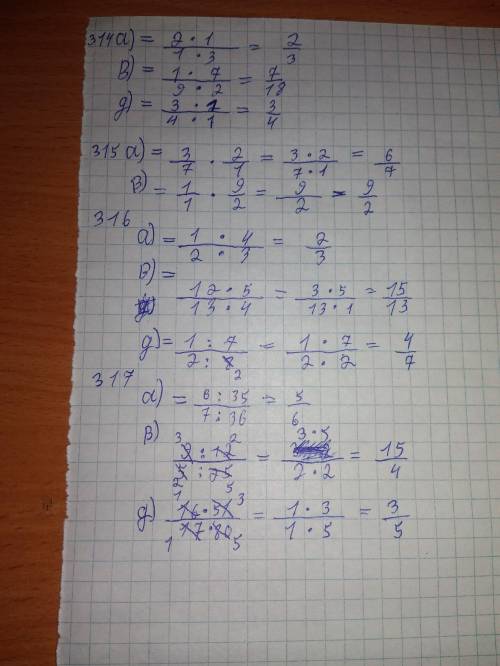 314 а) = 2 · 1 / 1 · 3 = 2/3
в) = 1 · 7 / 9 · 2 = 7/18
д) = 3 · 1 / 4 · 1 = 3/4
315 а) = 3/7 · 2/1 = 3 · 2 / 7 · 1 = 6/7
в) = 1/1 · 9/2 = 9/2 = 9/2
316
а) = 1 · 4 / 2 · 3 = 2/3
в) =
12 · 5 / 13 · 4 = 3 · 5 / 13 · 1 = 15/13
д) = 1 : 7 / 2 : 8 2 = 1 · 7 / 2 · 2 = 4/7
317
а) = 6 : 35 / 7 : 36 = 5/6
в) 3 2
: / : = 3 · 5 / 2 · 2 = 15/4
2 5
д) 1 3
16 · 51 / 17 · 80 = 1 · 3 / 1 · 5 = 3/5
1 5